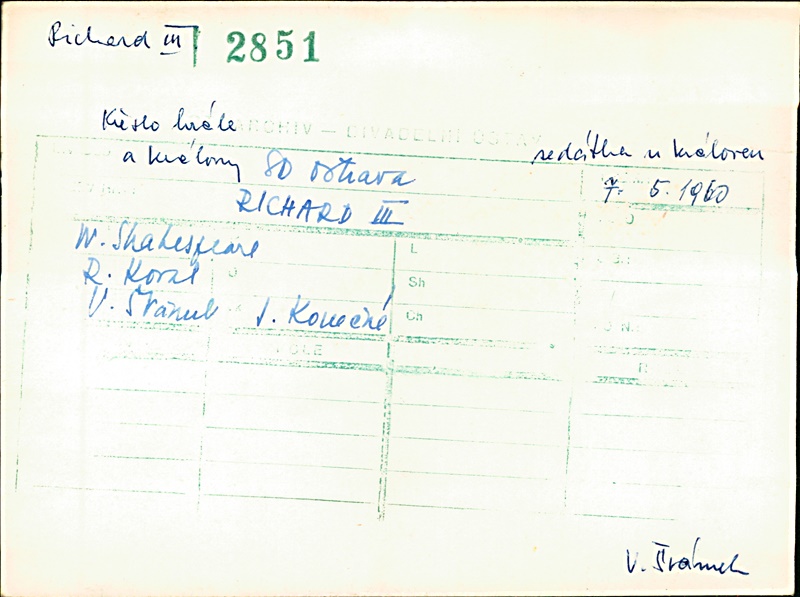 Richard III 2851
Křeslo krále
ARCHIV — DIVADELNÍ ÚSTAV
a královny SD Ostrava
sedátka u královen
5. 1960
RICHARD III
W. Shakespeare
L
R. Koval
Sh
V. Šrámek J. Konečná
Ch
R
V. Šrámek